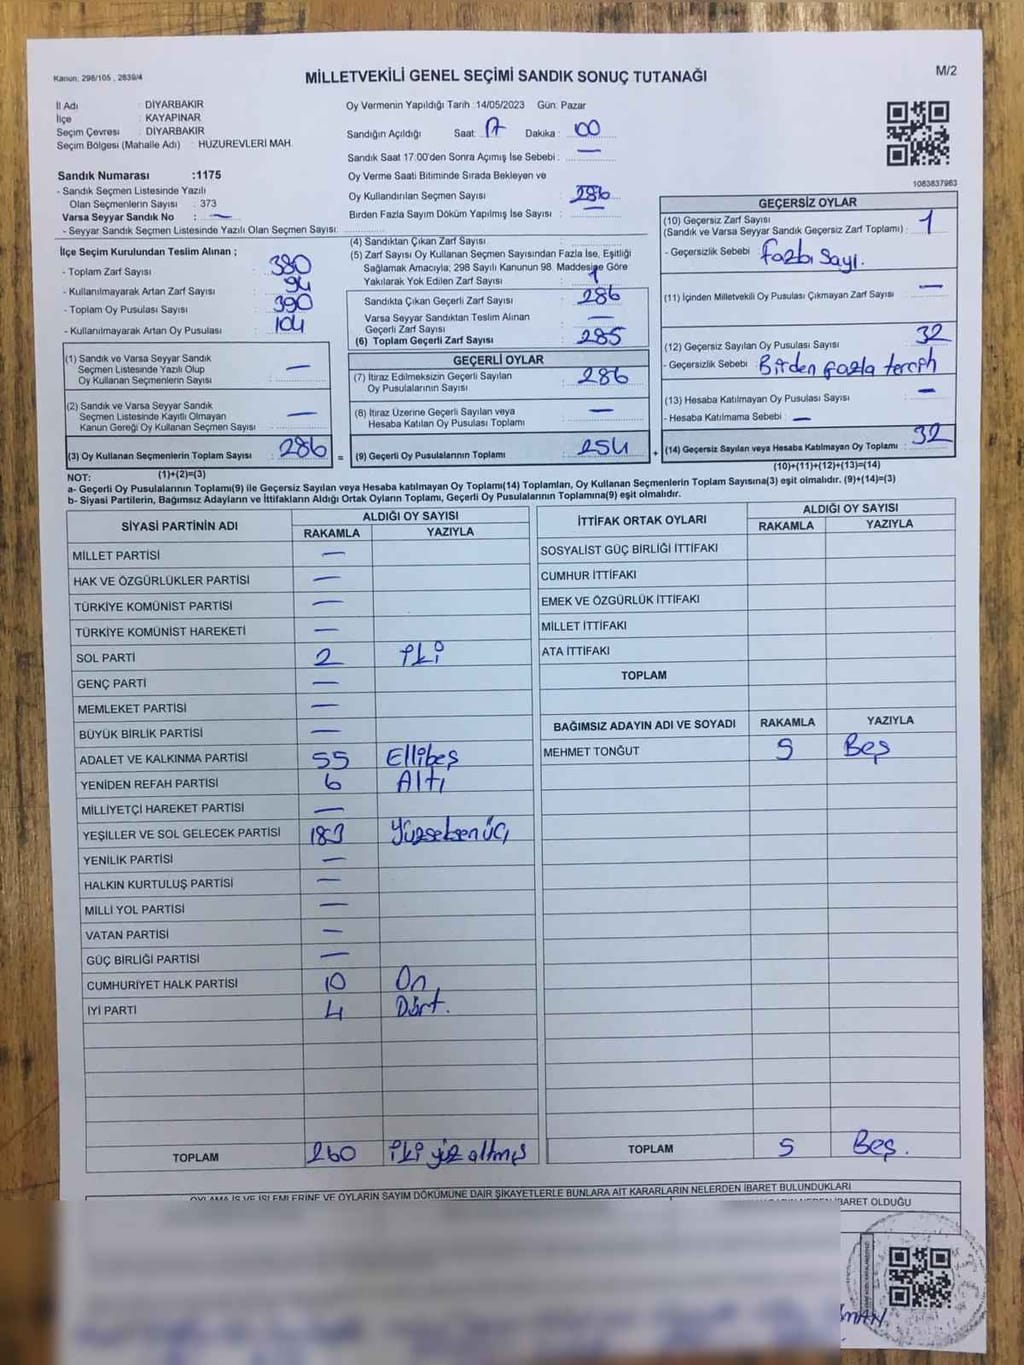 Kanun: 298/105 , 2839/4
MİLLETVEKİLİ GENEL SEÇİMİ SANDIK SONUÇ TUTANAĞI
M/2
İl Adı : DİYARBAKIR
İlçe : KAYAPINAR
Seçim Çevresi : DİYARBAKIR
Seçim Bölgesi (Mahalle Adı) : HUZUREVLERİ MAH.
Sandık Numarası :1175
- Sandık Seçmen Listesinde Yazılı
Olan Seçmenlerin Sayısı : 373
Varsa Seyyar Sandık No : —
- Seyyar Sandık Seçmen Listesinde Yazılı Olan Seçmen Sayısı:
Oy Vermenin Yapıldığı Tarih : 14/05/2023 Gün: Pazar
Sandığın Açıldığı Saat: 17 Dakika : 00
Sandık Saat 17:00'den Sonra Açımış İse Sebebi : —
Oy Verme Saati Bitiminde Sırada Bekleyen ve
Oy Kullandırılan Seçmen Sayısı : 286
Birden Fazla Sayım Döküm Yapılmış İse Sayısı : —
1083837983
İlçe Seçim Kurulundan Teslim Alınan ;
- Toplam Zarf Sayısı : 380
- Kullanılmayarak Artan Zarf Sayısı : 94
- Toplam Oy Pusulası Sayısı : 390
- Kullanılmayarak Artan Oy Pusulası : 104
(1) Sandık ve Varsa Seyyar Sandık
Seçmen Listesinde Yazılı Olup
Oy Kullanan Seçmenlerin Sayısı : —
(2) Sandık ve Varsa Seyyar Sandık
Seçmen Listesinde Kayıtlı Olmayan
Kanun Gereği Oy Kullanan Seçmen Sayısı : —
(3) Oy Kullanan Seçmenlerin Toplam Sayısı : 286
(4) Sandıktan Çıkan Zarf Sayısı :
(5) Zarf Sayısı Oy Kullanan Seçmen Sayısından Fazla İse, Eşitliği
Sağlamak Amacıyla; 298 Sayılı Kanunun 98. Maddesine Göre
Yakılarak Yok Edilen Zarf Sayısı : 1
Sandıkta Çıkan Geçerli Zarf Sayısı : 286
Varsa Seyyar Sandıktan Teslim Alınan
Geçerli Zarf Sayısı : —
(6) Toplam Geçerli Zarf Sayısı : 285
GEÇERLİ OYLAR
(7) İtiraz Edilmeksizin Geçerli Sayılan
Oy Pusulalarının Sayısı : 286
(8) İtiraz Üzerine Geçerli Sayılan veya
Hesaba Katılan Oy Pusulası Toplamı : —
= (9) Geçerli Oy Pusulalarının Toplamı : 254 +
GEÇERSİZ OYLAR
(10) Geçersiz Zarf Sayısı
(Sandık ve Varsa Seyyar Sandık Geçersiz Zarf Toplamı) : 1
- Geçersizlik Sebebi : Fazla Sayı.
(11) İçinden Milletvekili Oy Pusulası Çıkmayan Zarf Sayısı : —
(12) Geçersiz Sayılan Oy Pusulası Sayısı : 32
- Geçersizlik Sebebi : Birden fazla tercih
(13) Hesaba Katılmayan Oy Pusulası Sayısı : —
- Hesaba Katılmama Sebebi : —
(14) Geçersiz Sayılan veya Hesaba Katılmayan Oy Toplamı : 32
NOT: (1)+(2)=(3) (10)+(11)+(12)+(13)=(14)
a- Geçerli Oy Pusulalarının Toplamı(9) ile Geçersiz Sayılan veya Hesaba katılmayan Oy Toplamı(14) Toplamları, Oy Kullanan Seçmenlerin Toplam Sayısına(3) eşit olmalıdır. (9)+(14)=(3)
b- Siyasi Partilerin, Bağımsız Adayların ve İttifakların Aldığı Ortak Oyların Toplamı, Geçerli Oy Pusulalarının Toplamına(9) eşit olmalıdır.
SİYASİ PARTİNİN ADI ALDIĞI OY SAYISI
RAKAMLA YAZIYLA
MİLLET PARTİSİ —
HAK VE ÖZGÜRLÜKLER PARTİSİ —
TÜRKİYE KOMÜNİST PARTİSİ —
TÜRKİYE KOMÜNİST HAREKETİ —
SOL PARTİ 2 İki
GENÇ PARTİ —
MEMLEKET PARTİSİ —
BÜYÜK BİRLİK PARTİSİ —
ADALET VE KALKINMA PARTİSİ 55 Ellibeş
YENİDEN REFAH PARTİSİ 6 Altı
MİLLİYETÇİ HAREKET PARTİSİ —
YEŞİLLER VE SOL GELECEK PARTİSİ 183 Yüzseksenüç
YENİLİK PARTİSİ —
HALKIN KURTULUŞ PARTİSİ —
MİLLİ YOL PARTİSİ —
VATAN PARTİSİ —
GÜÇ BİRLİĞİ PARTİSİ —
CUMHURİYET HALK PARTİSİ 10 On
İYİ PARTİ 4 Dört.
TOPLAM 260 İki yüz altmış
İTTİFAK ORTAK OYLARI ALDIĞI OY SAYISI
RAKAMLA YAZIYLA
SOSYALİST GÜÇ BİRLİĞİ İTTİFAKI
CUMHUR İTTİFAKI
EMEK VE ÖZGÜRLÜK İTTİFAKI
MİLLET İTTİFAKI
ATA İTTİFAKI
TOPLAM
BAĞIMSIZ ADAYIN ADI VE SOYADI RAKAMLA YAZIYLA
MEHMET TONĞUT 5 Beş
TOPLAM 5 Beş.
OYLAMA İŞ VE İŞLEMLERİNE VE OYLARIN SAYIM DÖKÜMÜNE DAİR ŞİKAYETLERLE BUNLARA AİT KARARLARIN NELERDEN İBARET BULUNDUKLARI
İBARET OLDUĞU